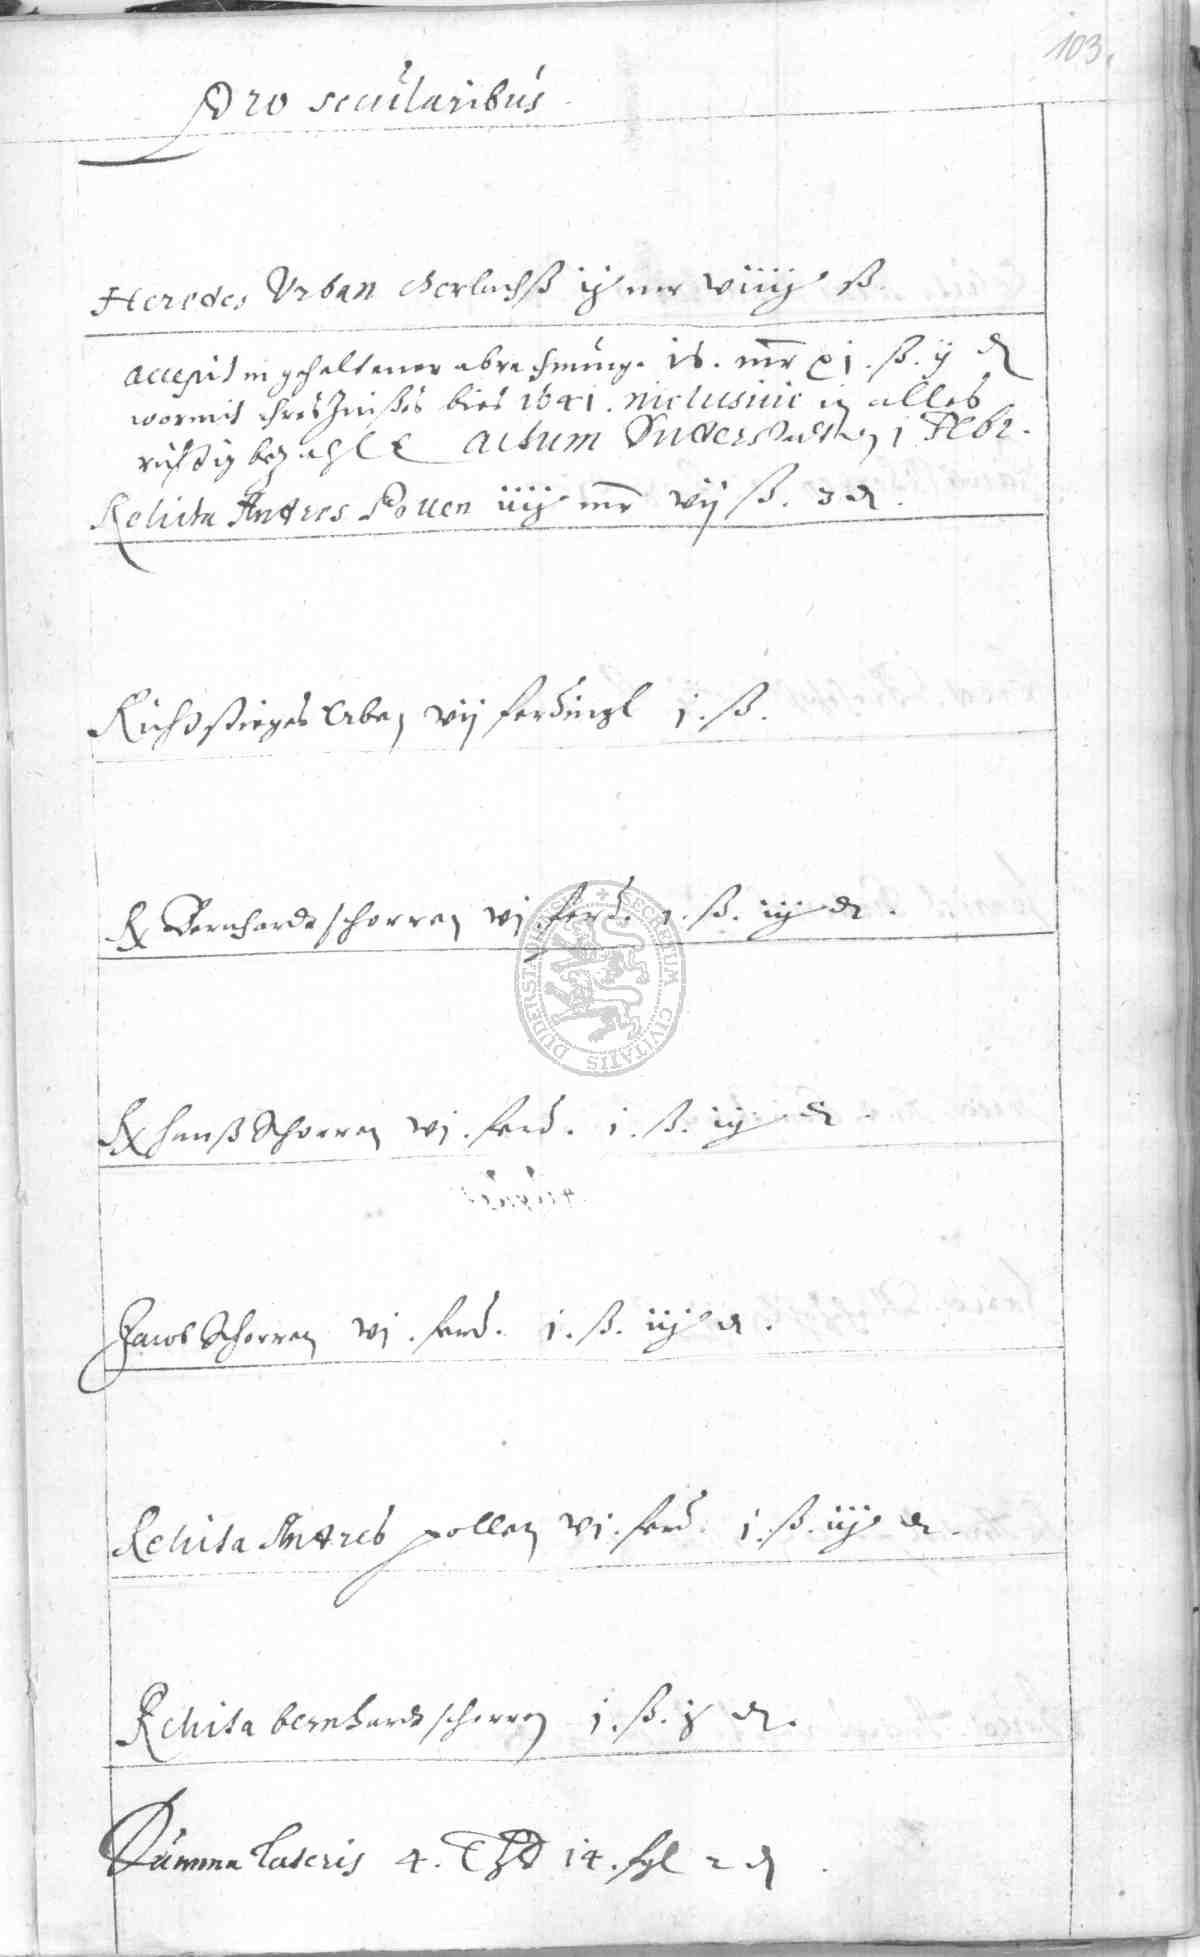 103.
Pro secularibus
Heredes Urban Gerlachß iij mr viiij ß.
accepit in gehaltener abrechnung. 16. mr xj. ß. ij d
wormit ihres Zinßes bies 1641. inclusiuè in alles
richtig bezahlt Actum Duderstadt den 1 Febr.
Relicta Andres Pollen iiij mr vij ß. 3 d.
Richtstieges Erben vij ferdingl j. ß.
Bernhardt schorren vj. ferd. 1. ß. iij d.
Hanß Schorren vj. ferd. 1. ß. iij d.
Jacob Schorren vj. ferd. 1. ß. iij d.
Relicta Andres pollen vj. ferd. j. ß. iij d.
Relicta bernhardt schorren j. ß. d.
Summa Lateris 4. 14. ßgl 2 d
SECRETUM CIVITATIS DUDERSTADENSIS